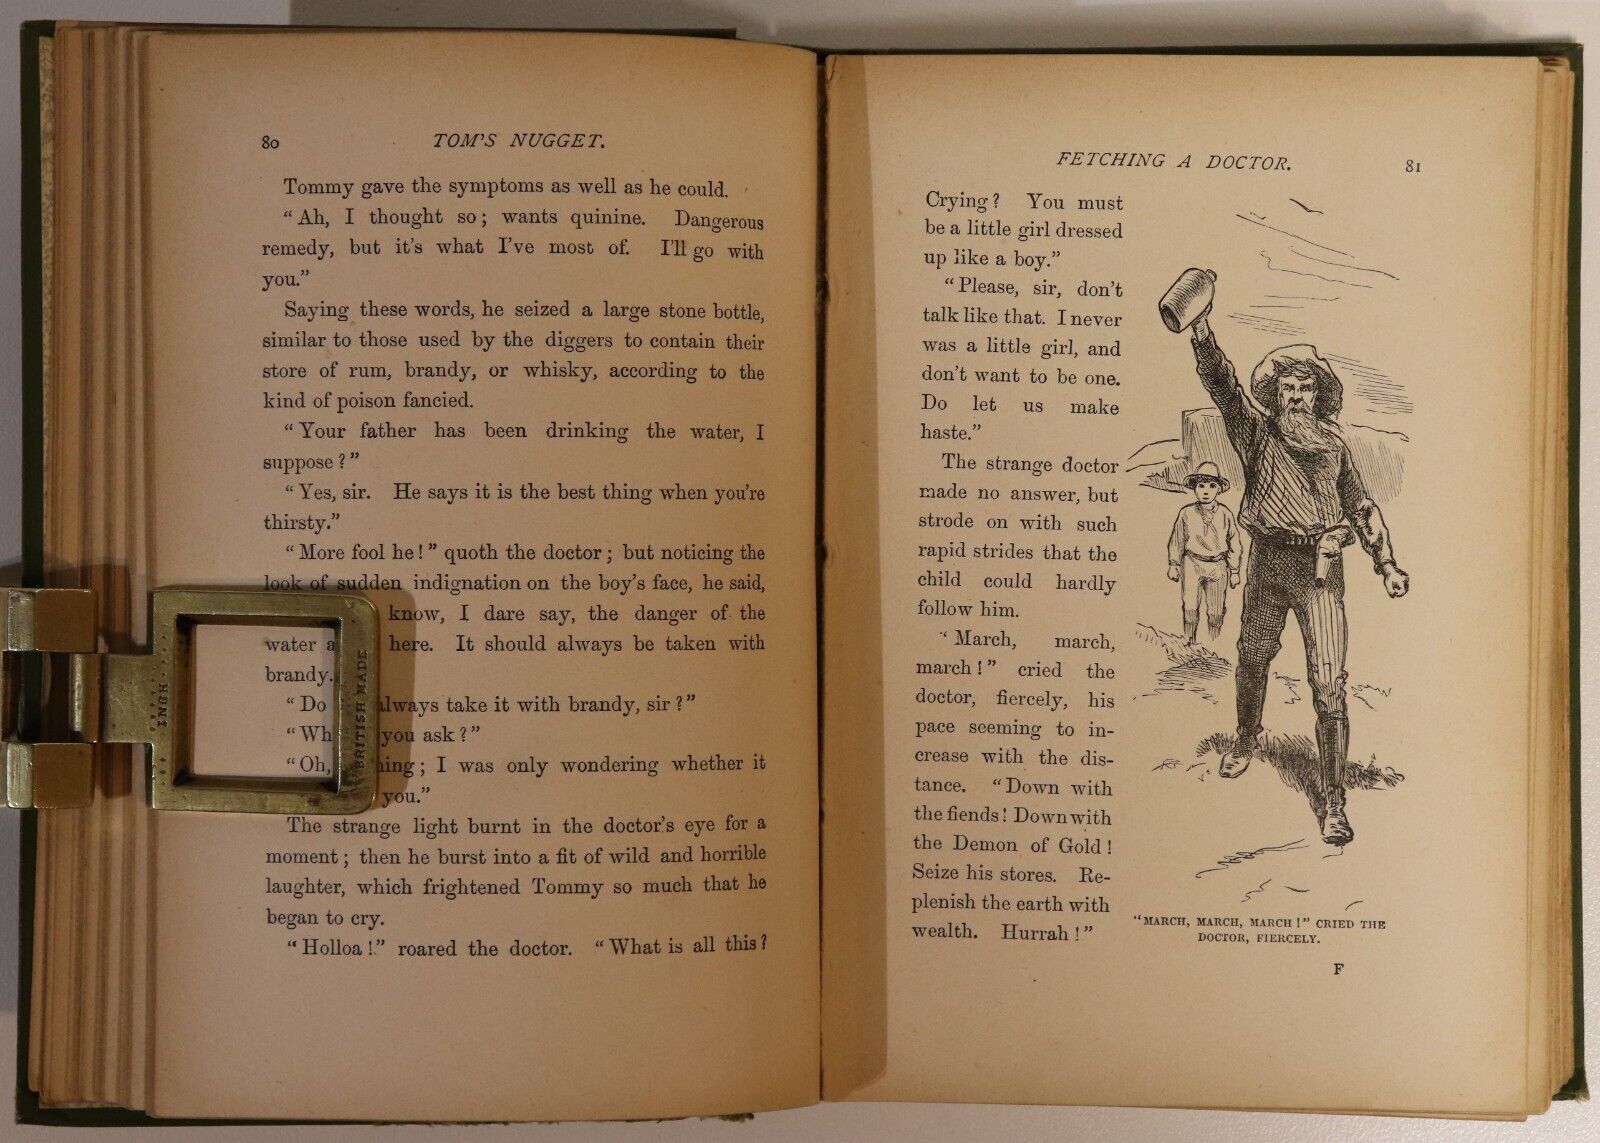 80 TOM'S NUGGET.
Tommy gave the symptoms as well as he could.
"Ah, I thought so; wants quinine. Dangerous
remedy, but it's what I've most of. I'll go with
you."
Saying these words, he seized a large stone bottle,
similar to those used by the diggers to contain their
store of rum, brandy, or whisky, according to the
kind of poison fancied.
"Your father has been drinking the water, I
suppose?"
"Yes, sir. He says it is the best thing when you're
thirsty."
"More fool he!" quoth the doctor; but noticing the
look of sudden indignation on the boy's face, he said,
know, I dare say, the danger of the
water a here. It should always be taken with
brandy.
"Do always take it with brandy, sir?"
"Wh you ask?"
"Oh, hing; I was only wondering whether it
you."
The strange light burnt in the doctor's eye for a
moment; then he burst into a fit of wild and horrible
laughter, which frightened Tommy so much that he
began to cry.
"Holloa!" roared the doctor. "What is all this?
INGH
BRITISH MADE
FETCHING A DOCTOR. 81
Crying? You must
be a little girl dressed
up like a boy."
"Please, sir, don't
talk like that. I never
was a little girl, and
don't want to be one.
Do let us make
haste."
The strange doctor
made no answer, but
strode on with such
rapid strides that the
child could hardly
follow him.
"March, march,
march!" cried the
doctor, fiercely, his
pace seeming to in-
crease with the dis-
tance. "Down with
the fiends! Down with
the Demon of Gold!
Seize his stores. Re-
plenish the earth with
wealth. Hurrah!"
"MARCH, MARCH, MARCH!" CRIED THE
DOCTOR, FIERCELY.
F